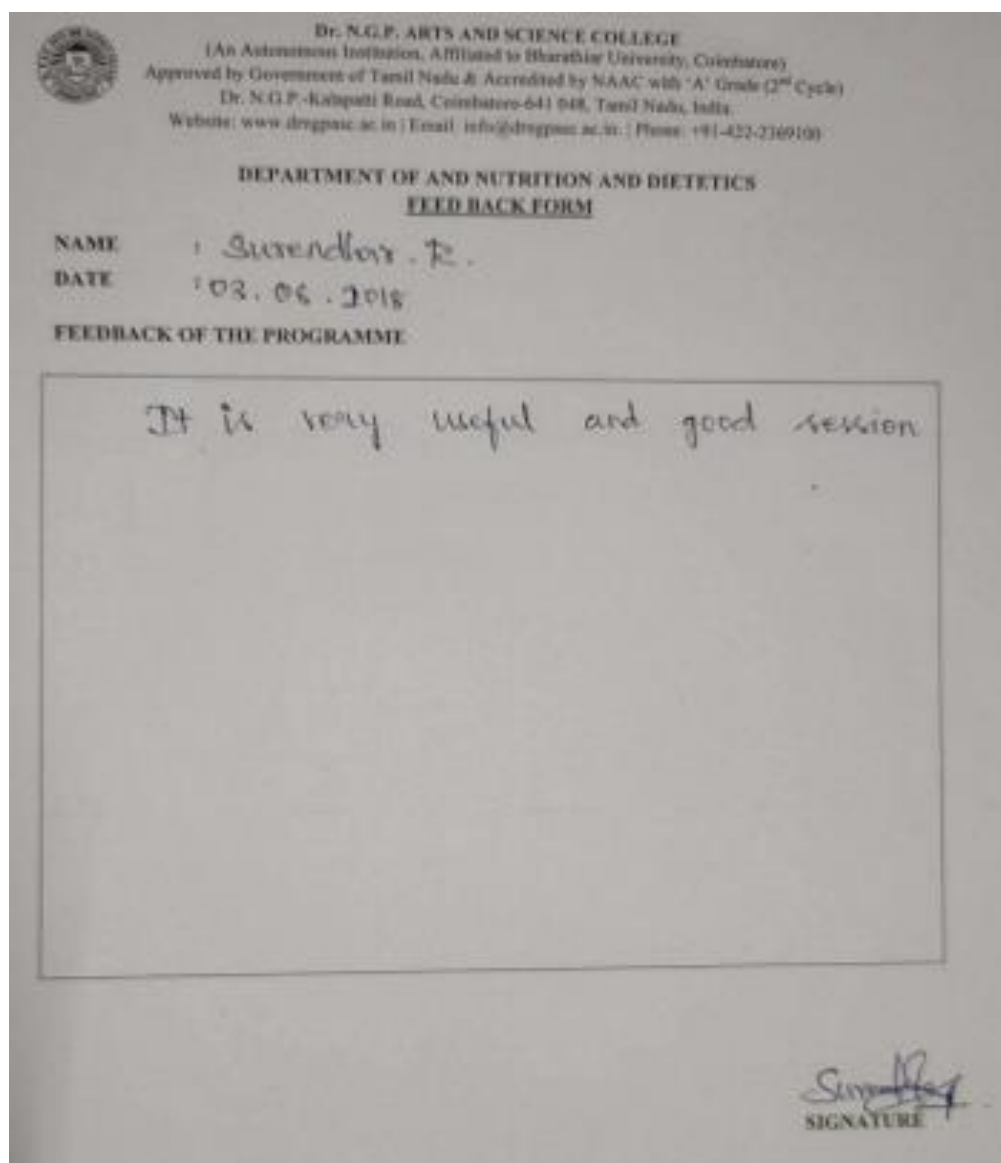 Dr. N.G.P. ARTS AND SCIENCE COLLEGE
(An Autonomous Institution, Affiliated to Bharathiar University, Coimbatore)
Approved by Government of Tamil Nadu & Accredited by NAAC with 'A' Grade (2nd Cycle)
Dr. N.G.P.-Kalapatti Road, Coimbatore-641 048, Tamil Nadu, India.
Website: www.drngpasc.ac.in | Email: info@drngpasc.ac.in | Phone: +91-422-2369100
DEPARTMENT OF AND NUTRITION AND DIETETICS
FEED BACK FORM
NAME : Surendhar. R.
DATE : 03.06.2018
FEEDBACK OF THE PROGRAMME
It is very useful and good session
.
SIGNATURE